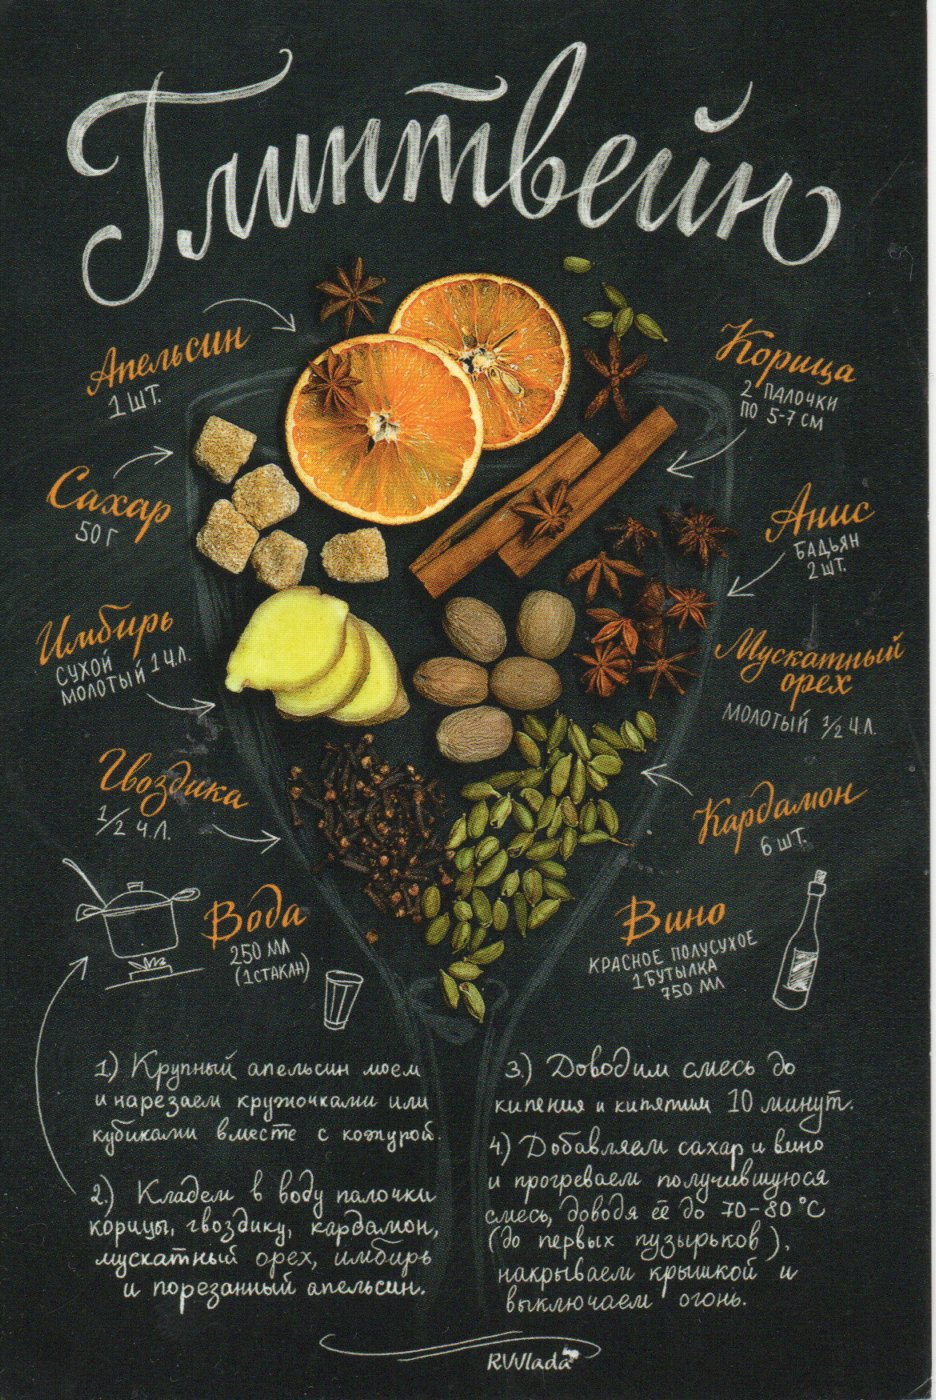 Глинтвейн
Апельсин
1 шт.
Сахар
50 г
Имбирь
сухой
молотый 1 ч.л.
Гвоздика
1/2 ч.л.
Вода
250 мл
(1стакан)
Корица
2 палочки
по 5-7 см
Анис
бадьян
2 шт.
Мускатный
орех
молотый 1/2 ч.л.
Кардамон
6 шт.
Вино
красное полусухое
1 бутылка
750 мл
1.) Крупный апельсин моем
и нарезаем кружочками или
кубиками вместе с кожурой.
2.) Кладем в воду палочки
корицы, гвоздику, кардамон,
мускатный орех, имбирь
и порезанный апельсин.
3.) Доводим смесь до
кипения и кипятим 10 минут.
4) Добавляем сахар и вино
и прогреваем получившуюся
смесь, доводя её до 70-80°С
(до первых пузырьков),
накрываем крышкой и
выключаем огонь.
RVVlada